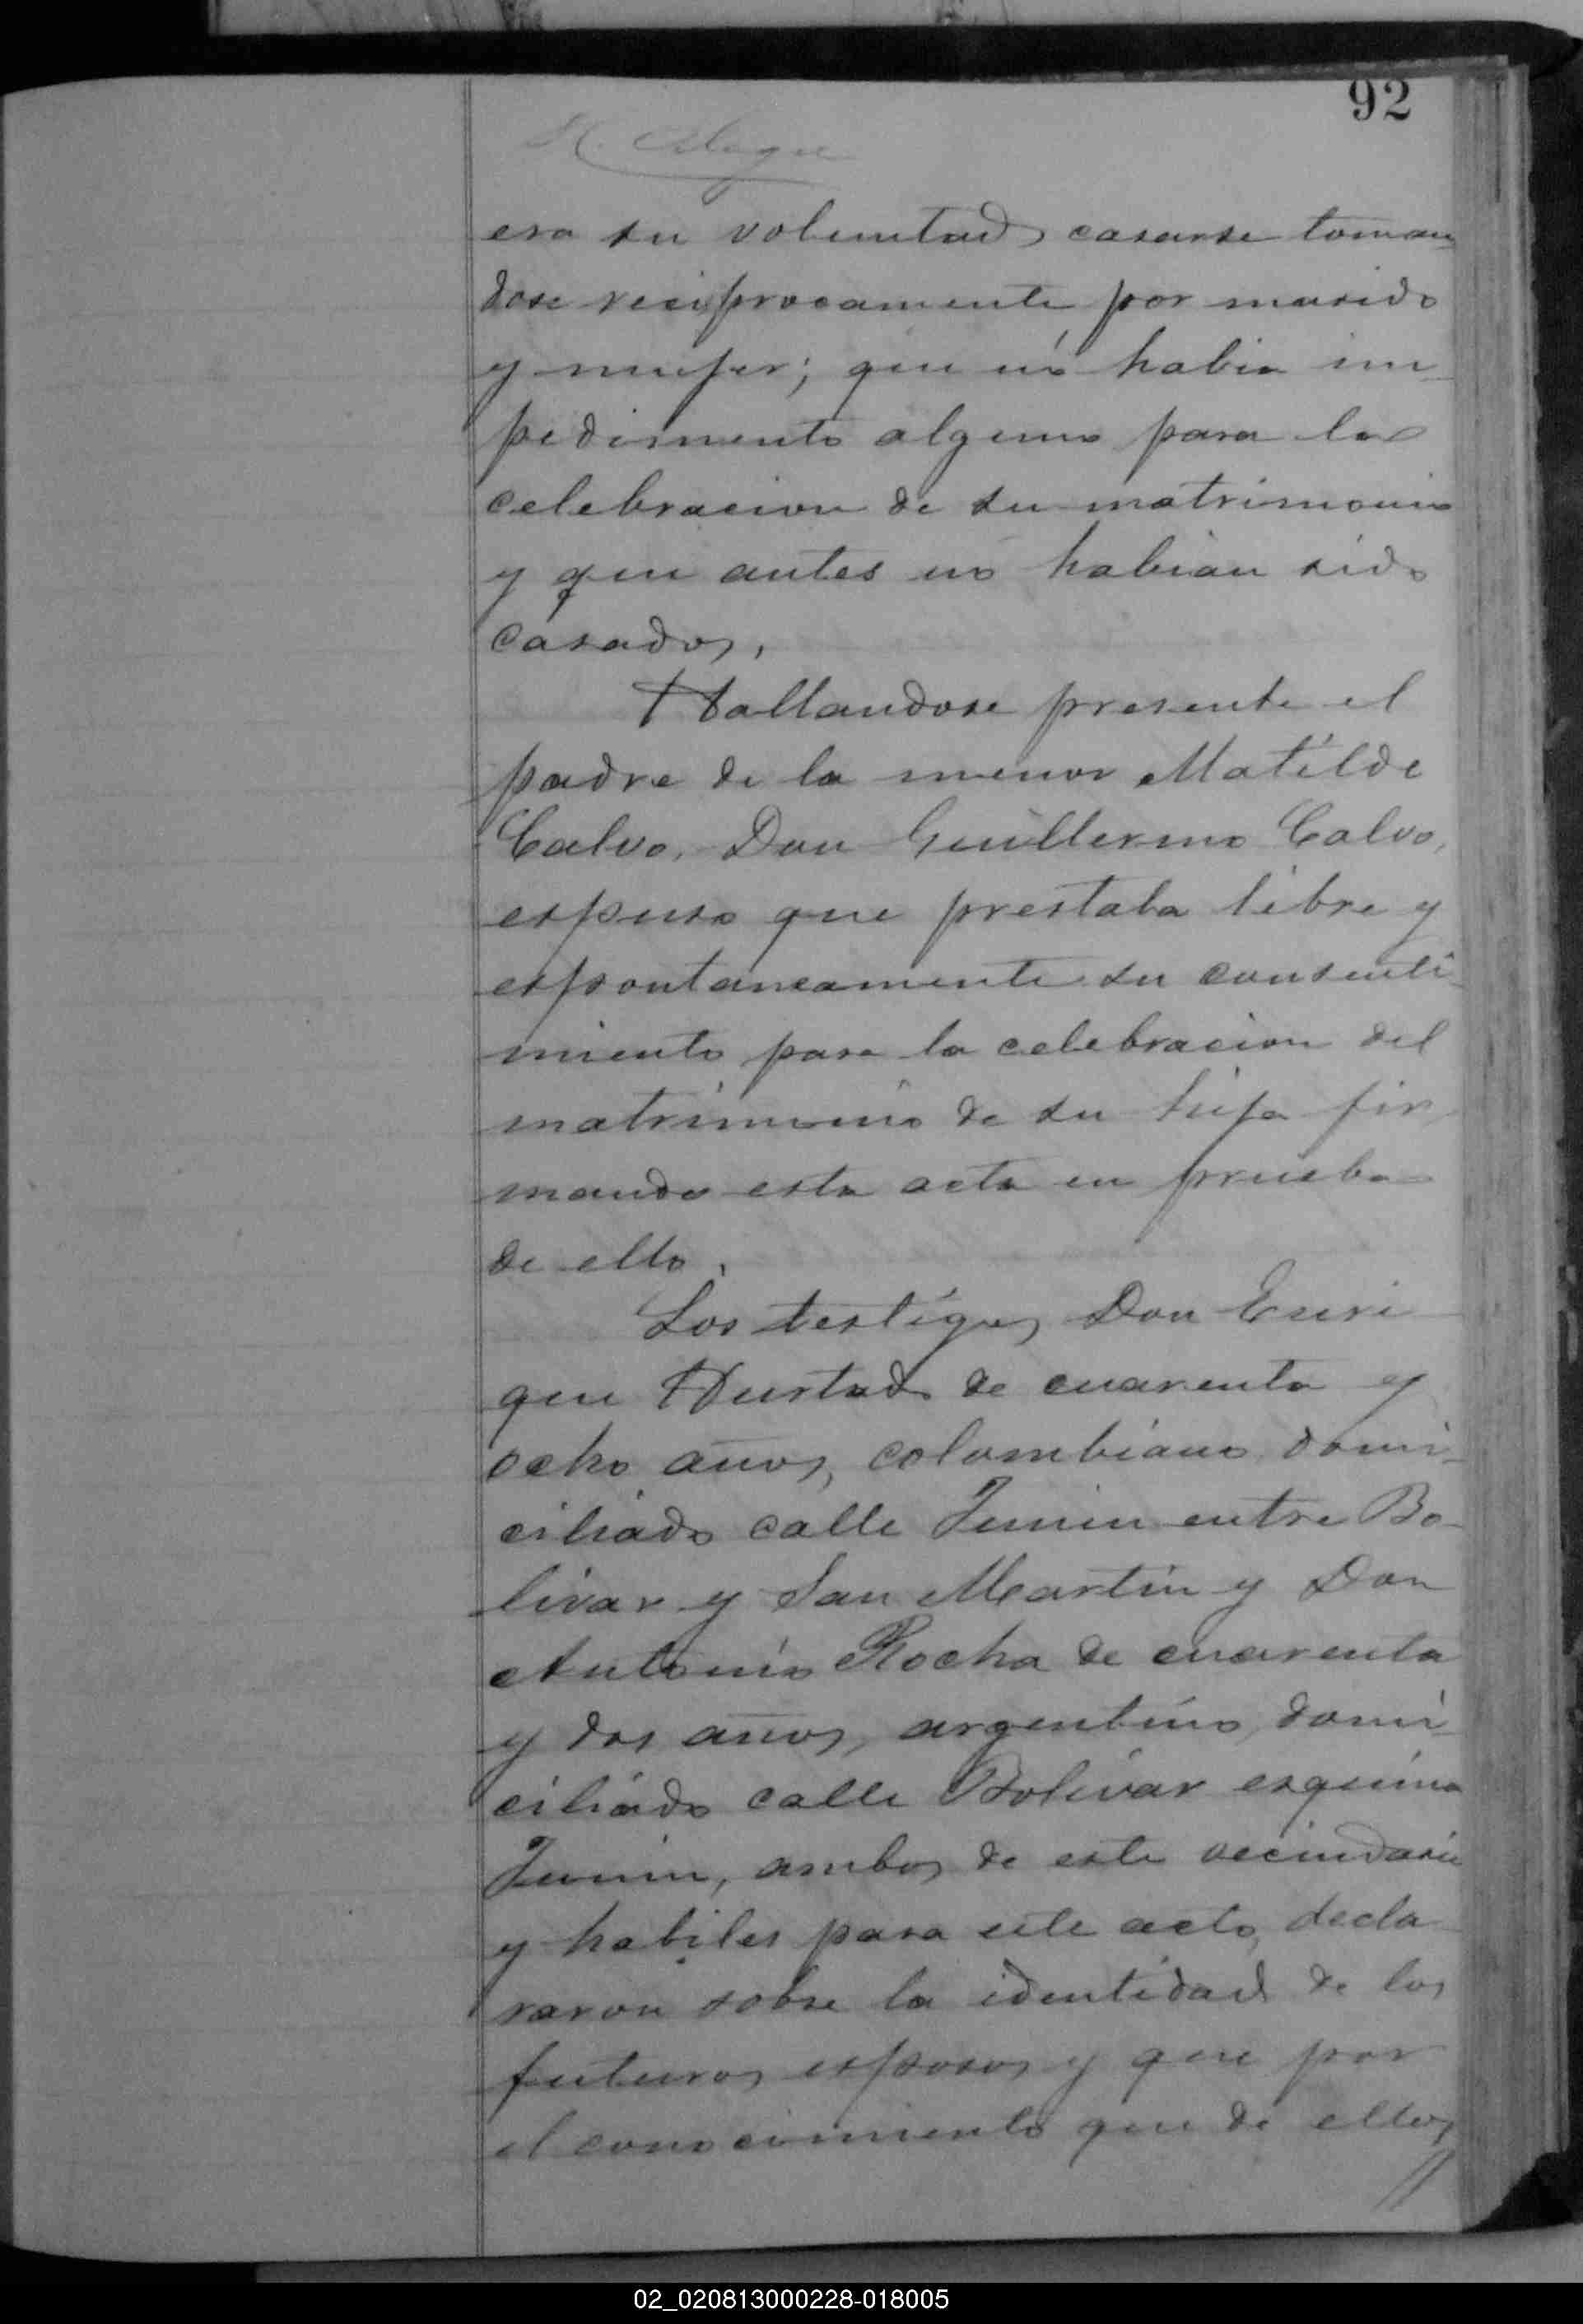 92
era su voluntad casarse toman-
dose reciprocamente por marido
y mujer; que nó habia im-
pedimento alguno para la
celebracion de su matrimonio
y que antes no habian sido
casados.
Hallandose presente el
padre de la menor Matilde
Calvo, Don Guillermo Calvo,
espuso que prestaba libre y
espontaneamente su consenti-
miento para la celebracion del
matrimonio de su hija fir
mando esta acta en prueba
de ello.
Los testigos Don Enri
que Hurtado de cuarenta y
ocho años, colombiano domi-
ciliado calle Junin entre Bo-
livar y San Martin y Don
Antonio Rocha de cuarenta
y dos años, argentino, domi-
ciliado calle Bolivar esquina
Junin, ambos de este vecindario
y habiles para este acto, decla
raron sobre la identidad de los
futuros esposos y que por
el conocimiento que de ellos
//
02_020813000228-018005